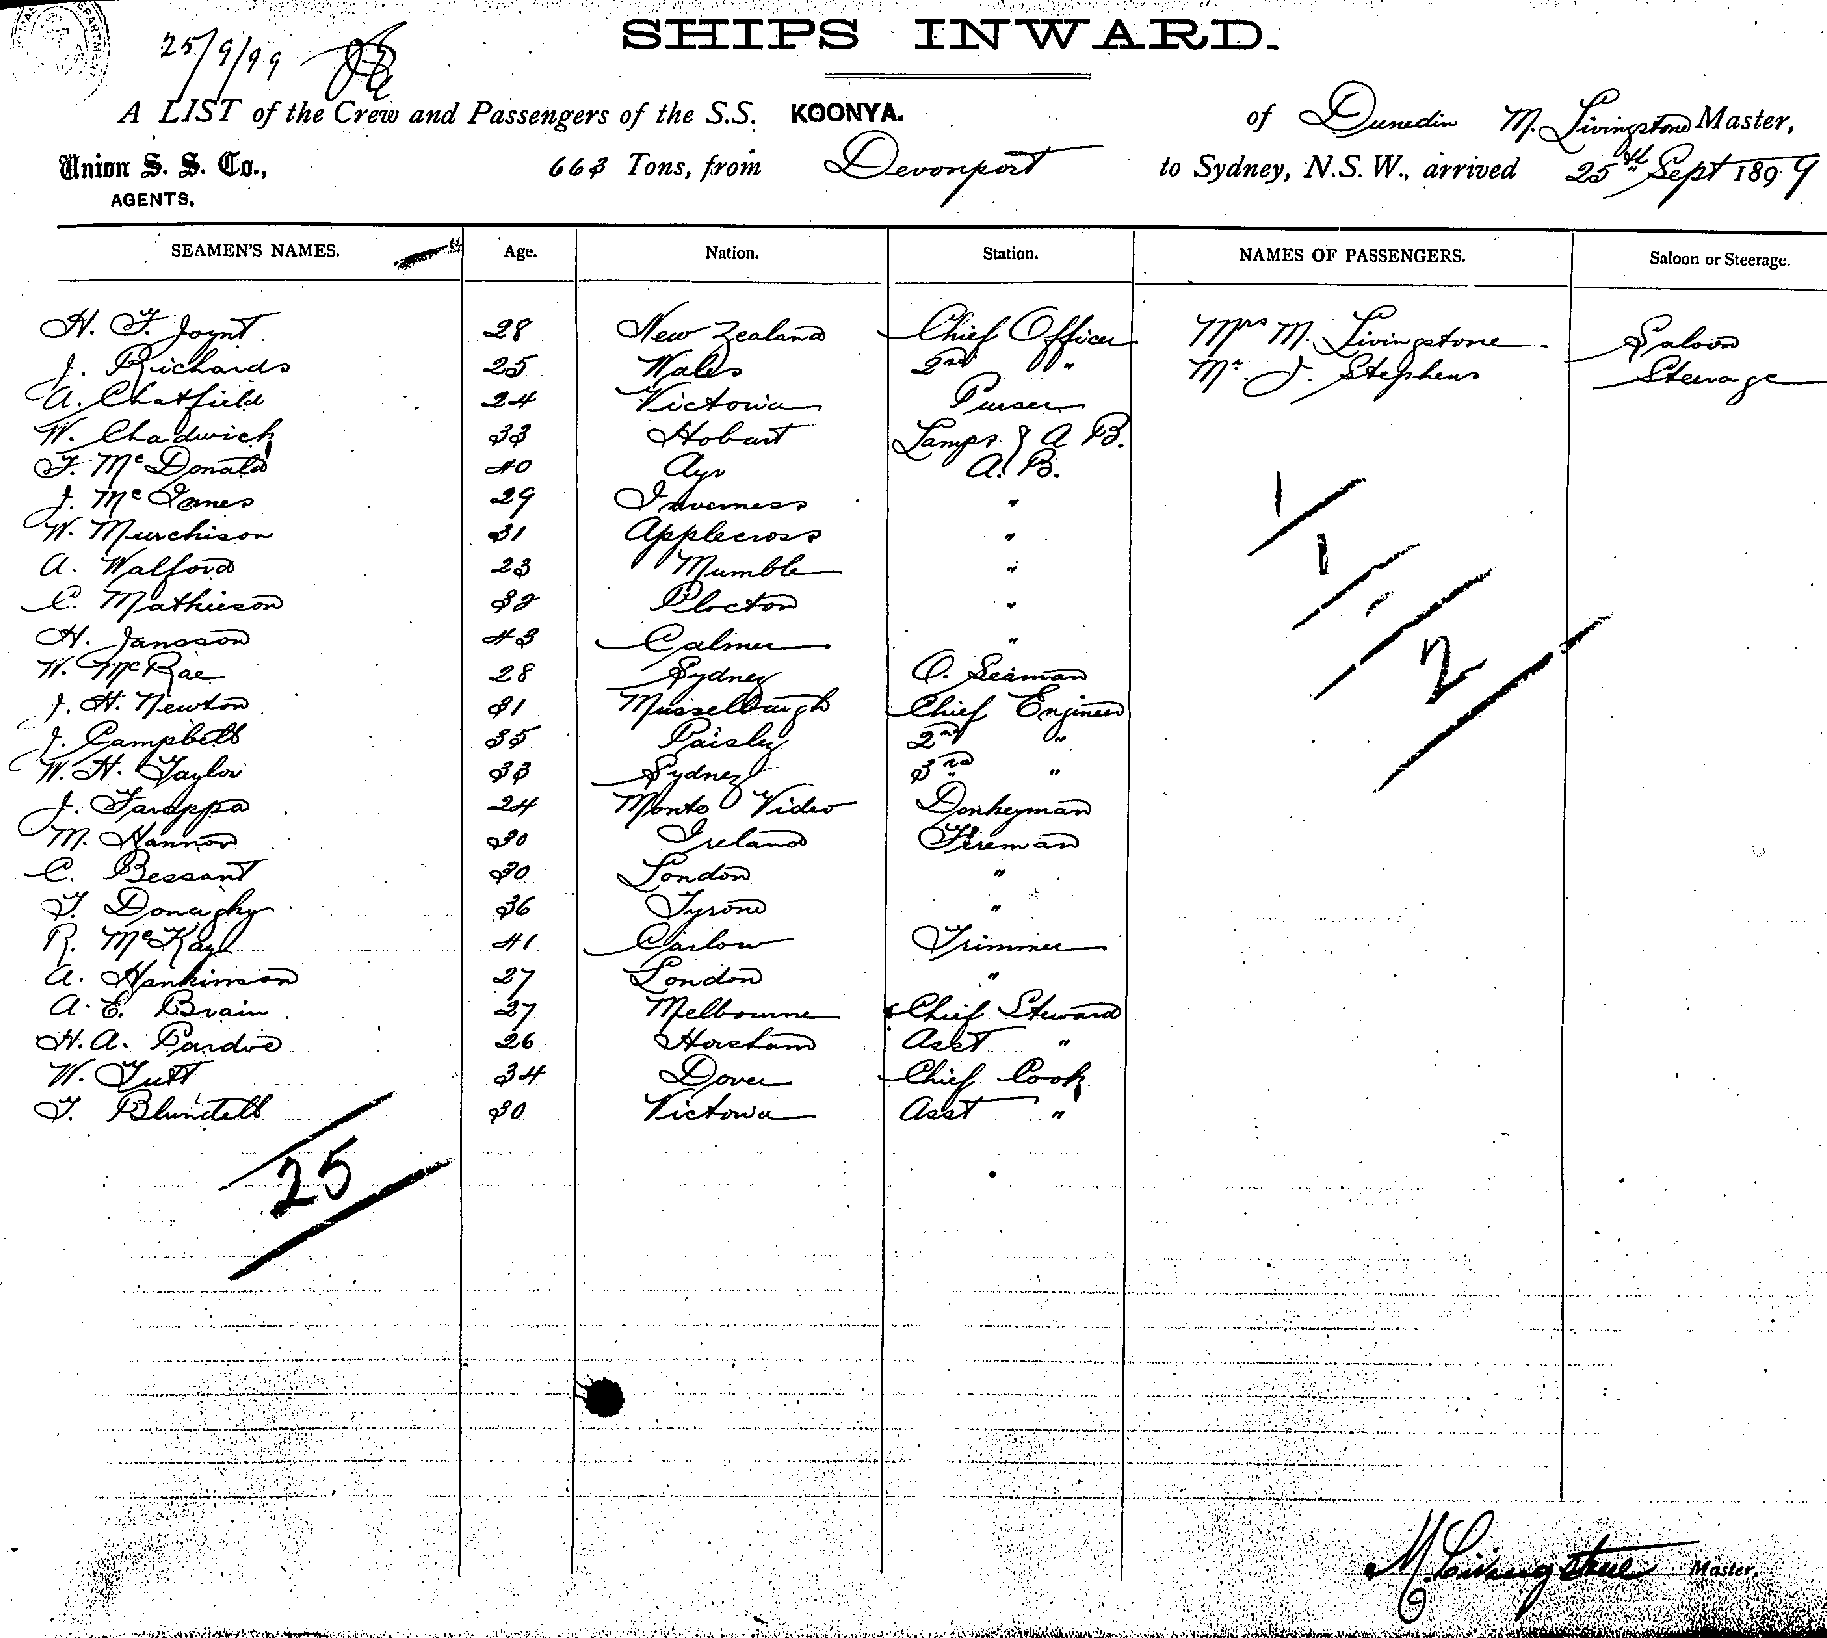 25/9/99
SHIPS INWARD.
A LIST of the Crew and Passengers of the S.S. KOONYA. of Dunedin M. Livingstone Master,
Union S. S. Co., 663 Tons, from Devonport to Sydney, N.S.W., arrived 25th Sept 1899
AGENTS.
SEAMEN'S NAMES. Age. Nation. Station. NAMES OF PASSENGERS. Saloon or Steerage.
H. F. Joynt 28 New Zealand Chief Officer Mrs M. Livingstone Saloon
J. Richards 25 Wales 2nd " Mr J. Stephens Steerage
A. Chatfield 24 Victoria Purser
W. Chadwick 33 Hobart Lamps & A B.
F. McDonald 40 Ayr A. B.
J. McInnes 29 Inverness "
W. Murchison 31 Applecross "
A. Walford 23 Mumble "
C. Mathieson 32 Plocton "
H. Jansson 43 Calmer "
W. McRae 28 Sydney O. Seaman
J. H. Newton 31 Musselburgh Chief Engineer
J. Campbell 35 Paisley 2nd "
W. H. Taylor 33 Sydney 3rd "
J. Tarappa 24 Monto Video Donkeyman
M. Hannon 30 Ireland Fireman
C. Bessant 30 London "
T. Donaghy 36 Tyrone "
R. McKay 41 Carlow Trimmer
A. Hankinson 27 London "
A. E. Brain 27 Melbourne Chief Steward
H. A. Pardoe 26 Horsham Asst "
W. Tutt 34 Dover Chief Cook
T. Blundell 30 Victoria Asst "
1/1
2
25
M. Livingstone Master.